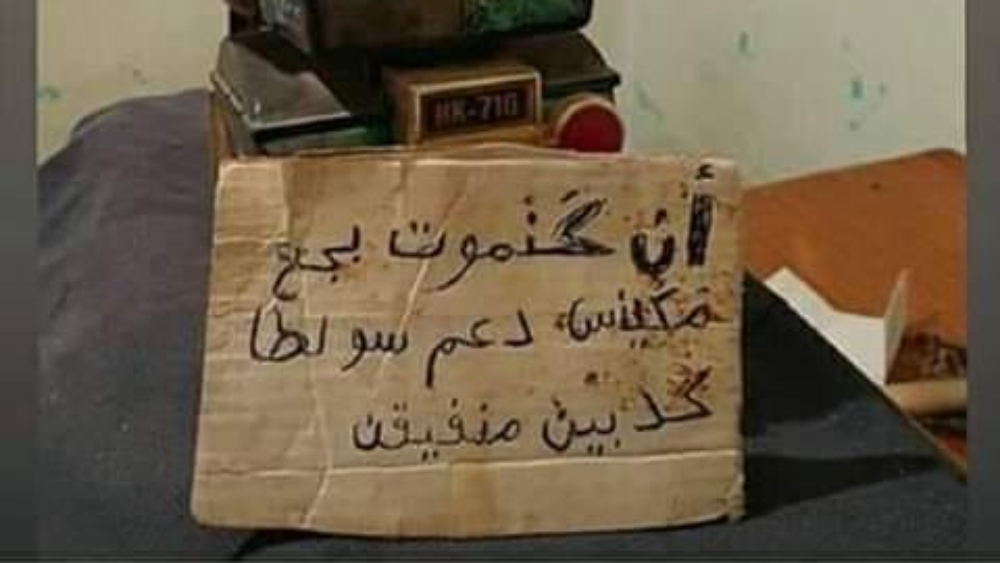 HK-710
أن كَنموت بجع
مكينس دعم سولطا
كدبين منفيقن